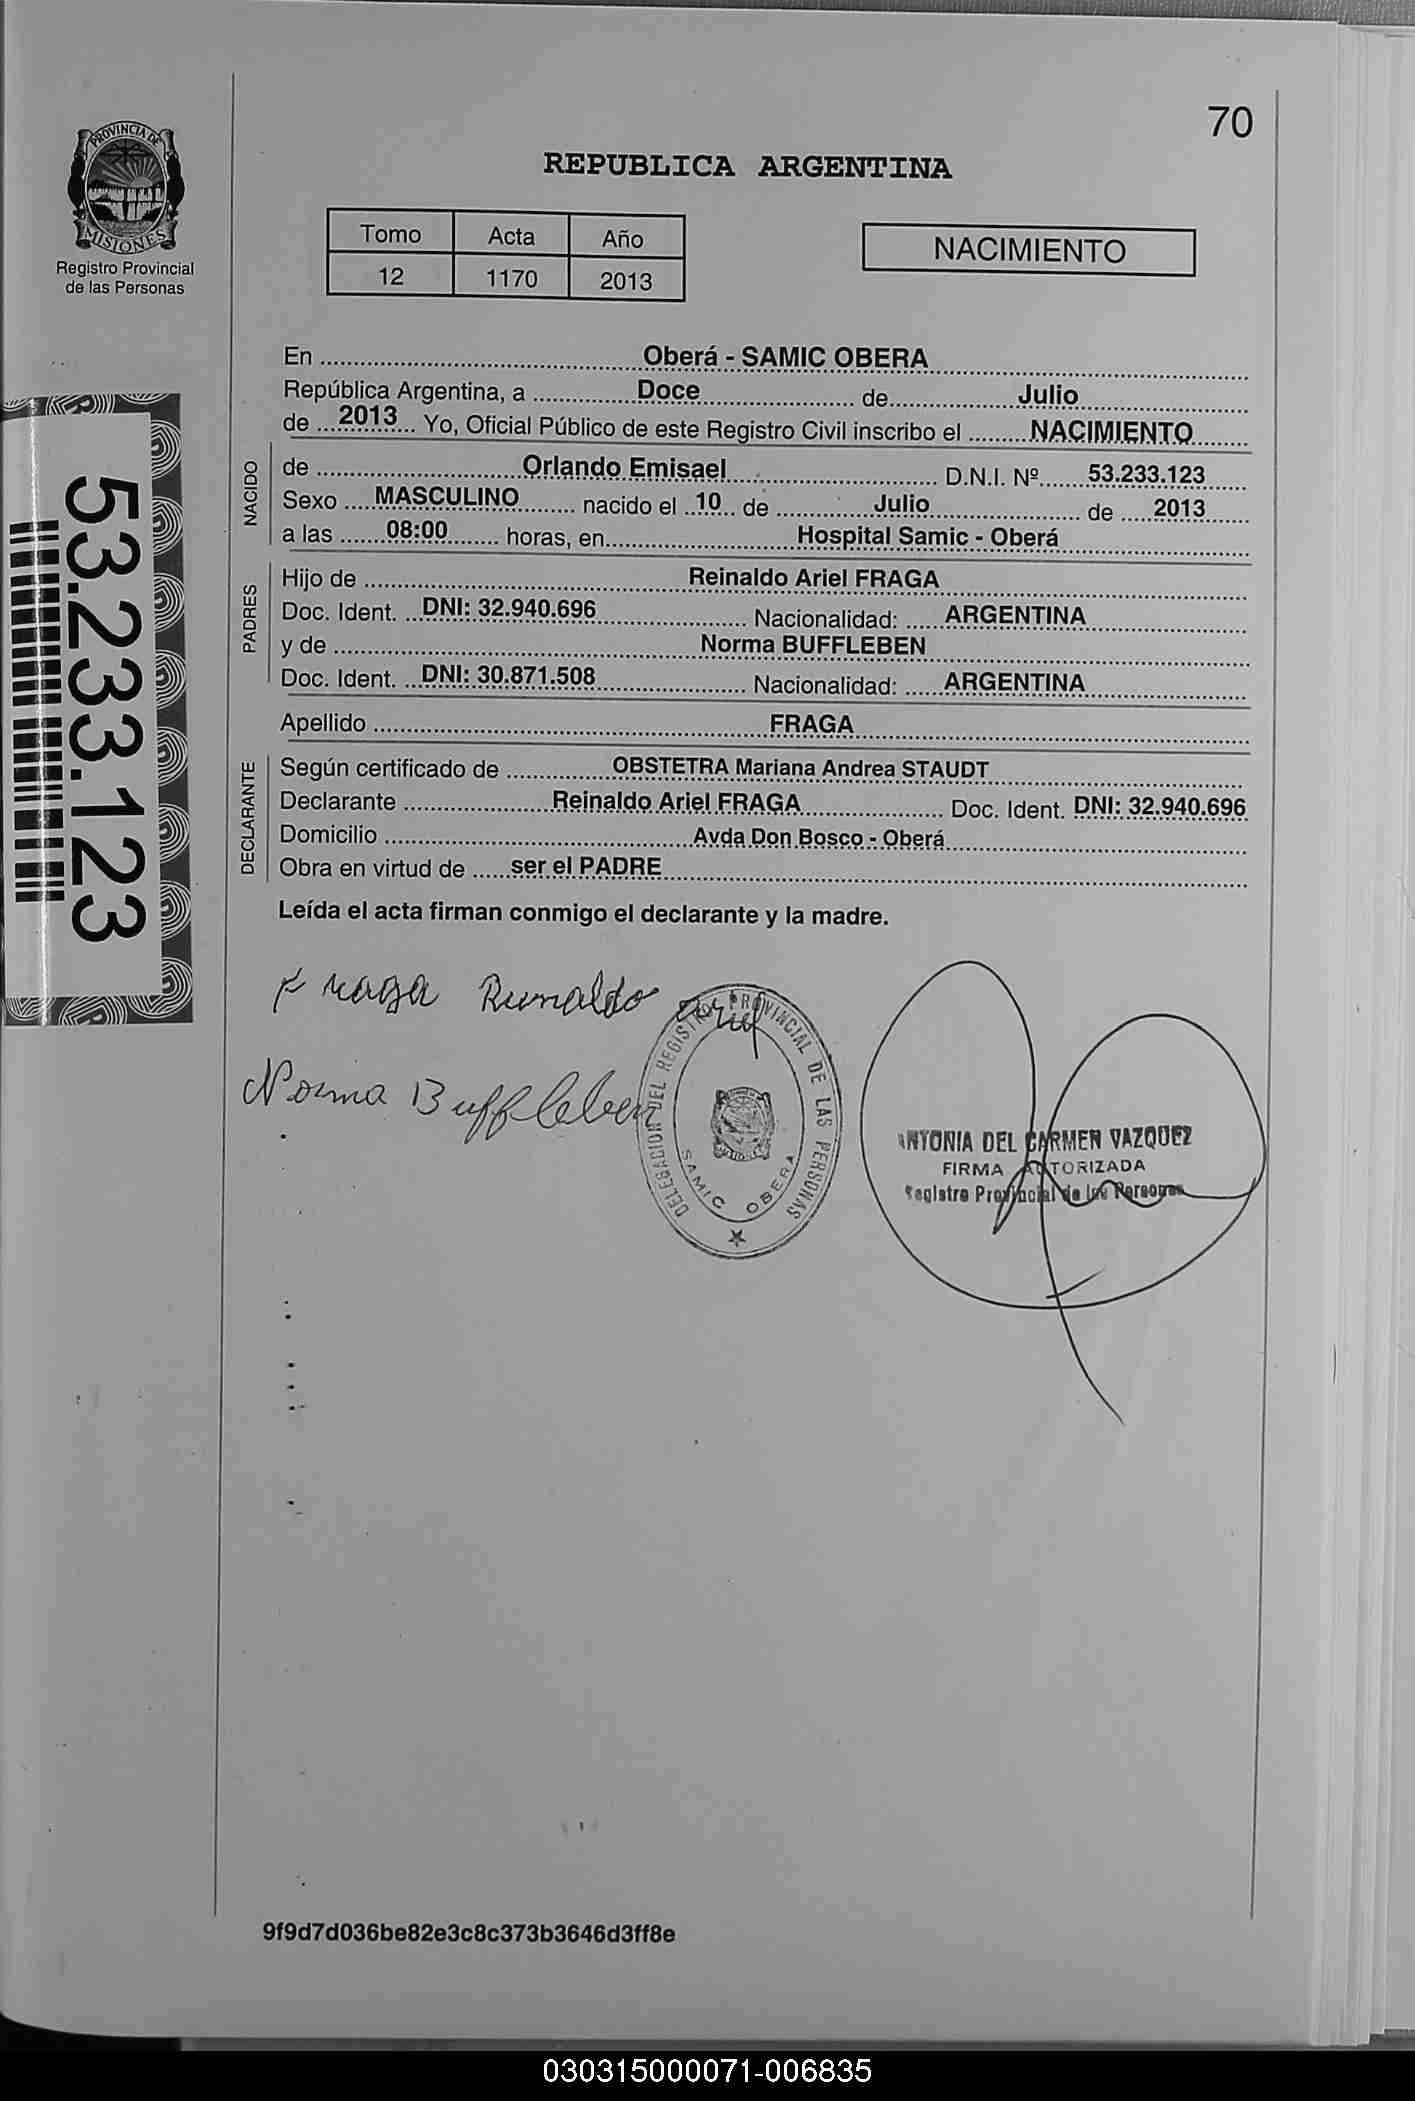 70
PROVINCIA DE
MISIONES
Registro Provincial
de las Personas
REPUBLICA ARGENTINA
Tomo Acta Año
12 1170 2013
NACIMIENTO
En Oberá - SAMIC OBERA
República Argentina, a Doce de Julio
de 2013 Yo, Oficial Público de este Registro Civil inscribo el NACIMIENTO
NACIDO
de Orlando Emisael D.N.I. Nº 53.233.123
Sexo MASCULINO nacido el 10 de Julio de 2013
a las 08:00 horas, en Hospital Samic - Oberá
PADRES
Hijo de Reinaldo Ariel FRAGA
Doc. Ident. DNI: 32.940.696 Nacionalidad: ARGENTINA
y de Norma BUFFLEBEN
Doc. Ident. DNI: 30.871.508 Nacionalidad: ARGENTINA
Apellido FRAGA
DECLARANTE
Según certificado de OBSTETRA Mariana Andrea STAUDT
Declarante Reinaldo Ariel FRAGA Doc. Ident. DNI: 32.940.696
Domicilio Avda Don Bosco - Oberá
Obra en virtud de ser el PADRE
Leída el acta firman conmigo el declarante y la madre.
53.233.123
Fraga
Norma Buffleben
DELEGACION DEL REGISTRO PROVINCIAL DE LAS PERSONAS
SAMIC OBERA
ANTONIA DEL CARMEN VAZQUEZ
FIRMA AUTORIZADA
Registro Provincial de las Personas
9f9d7d036be82e3c8c373b3646d3ff8e
030315000071-006835